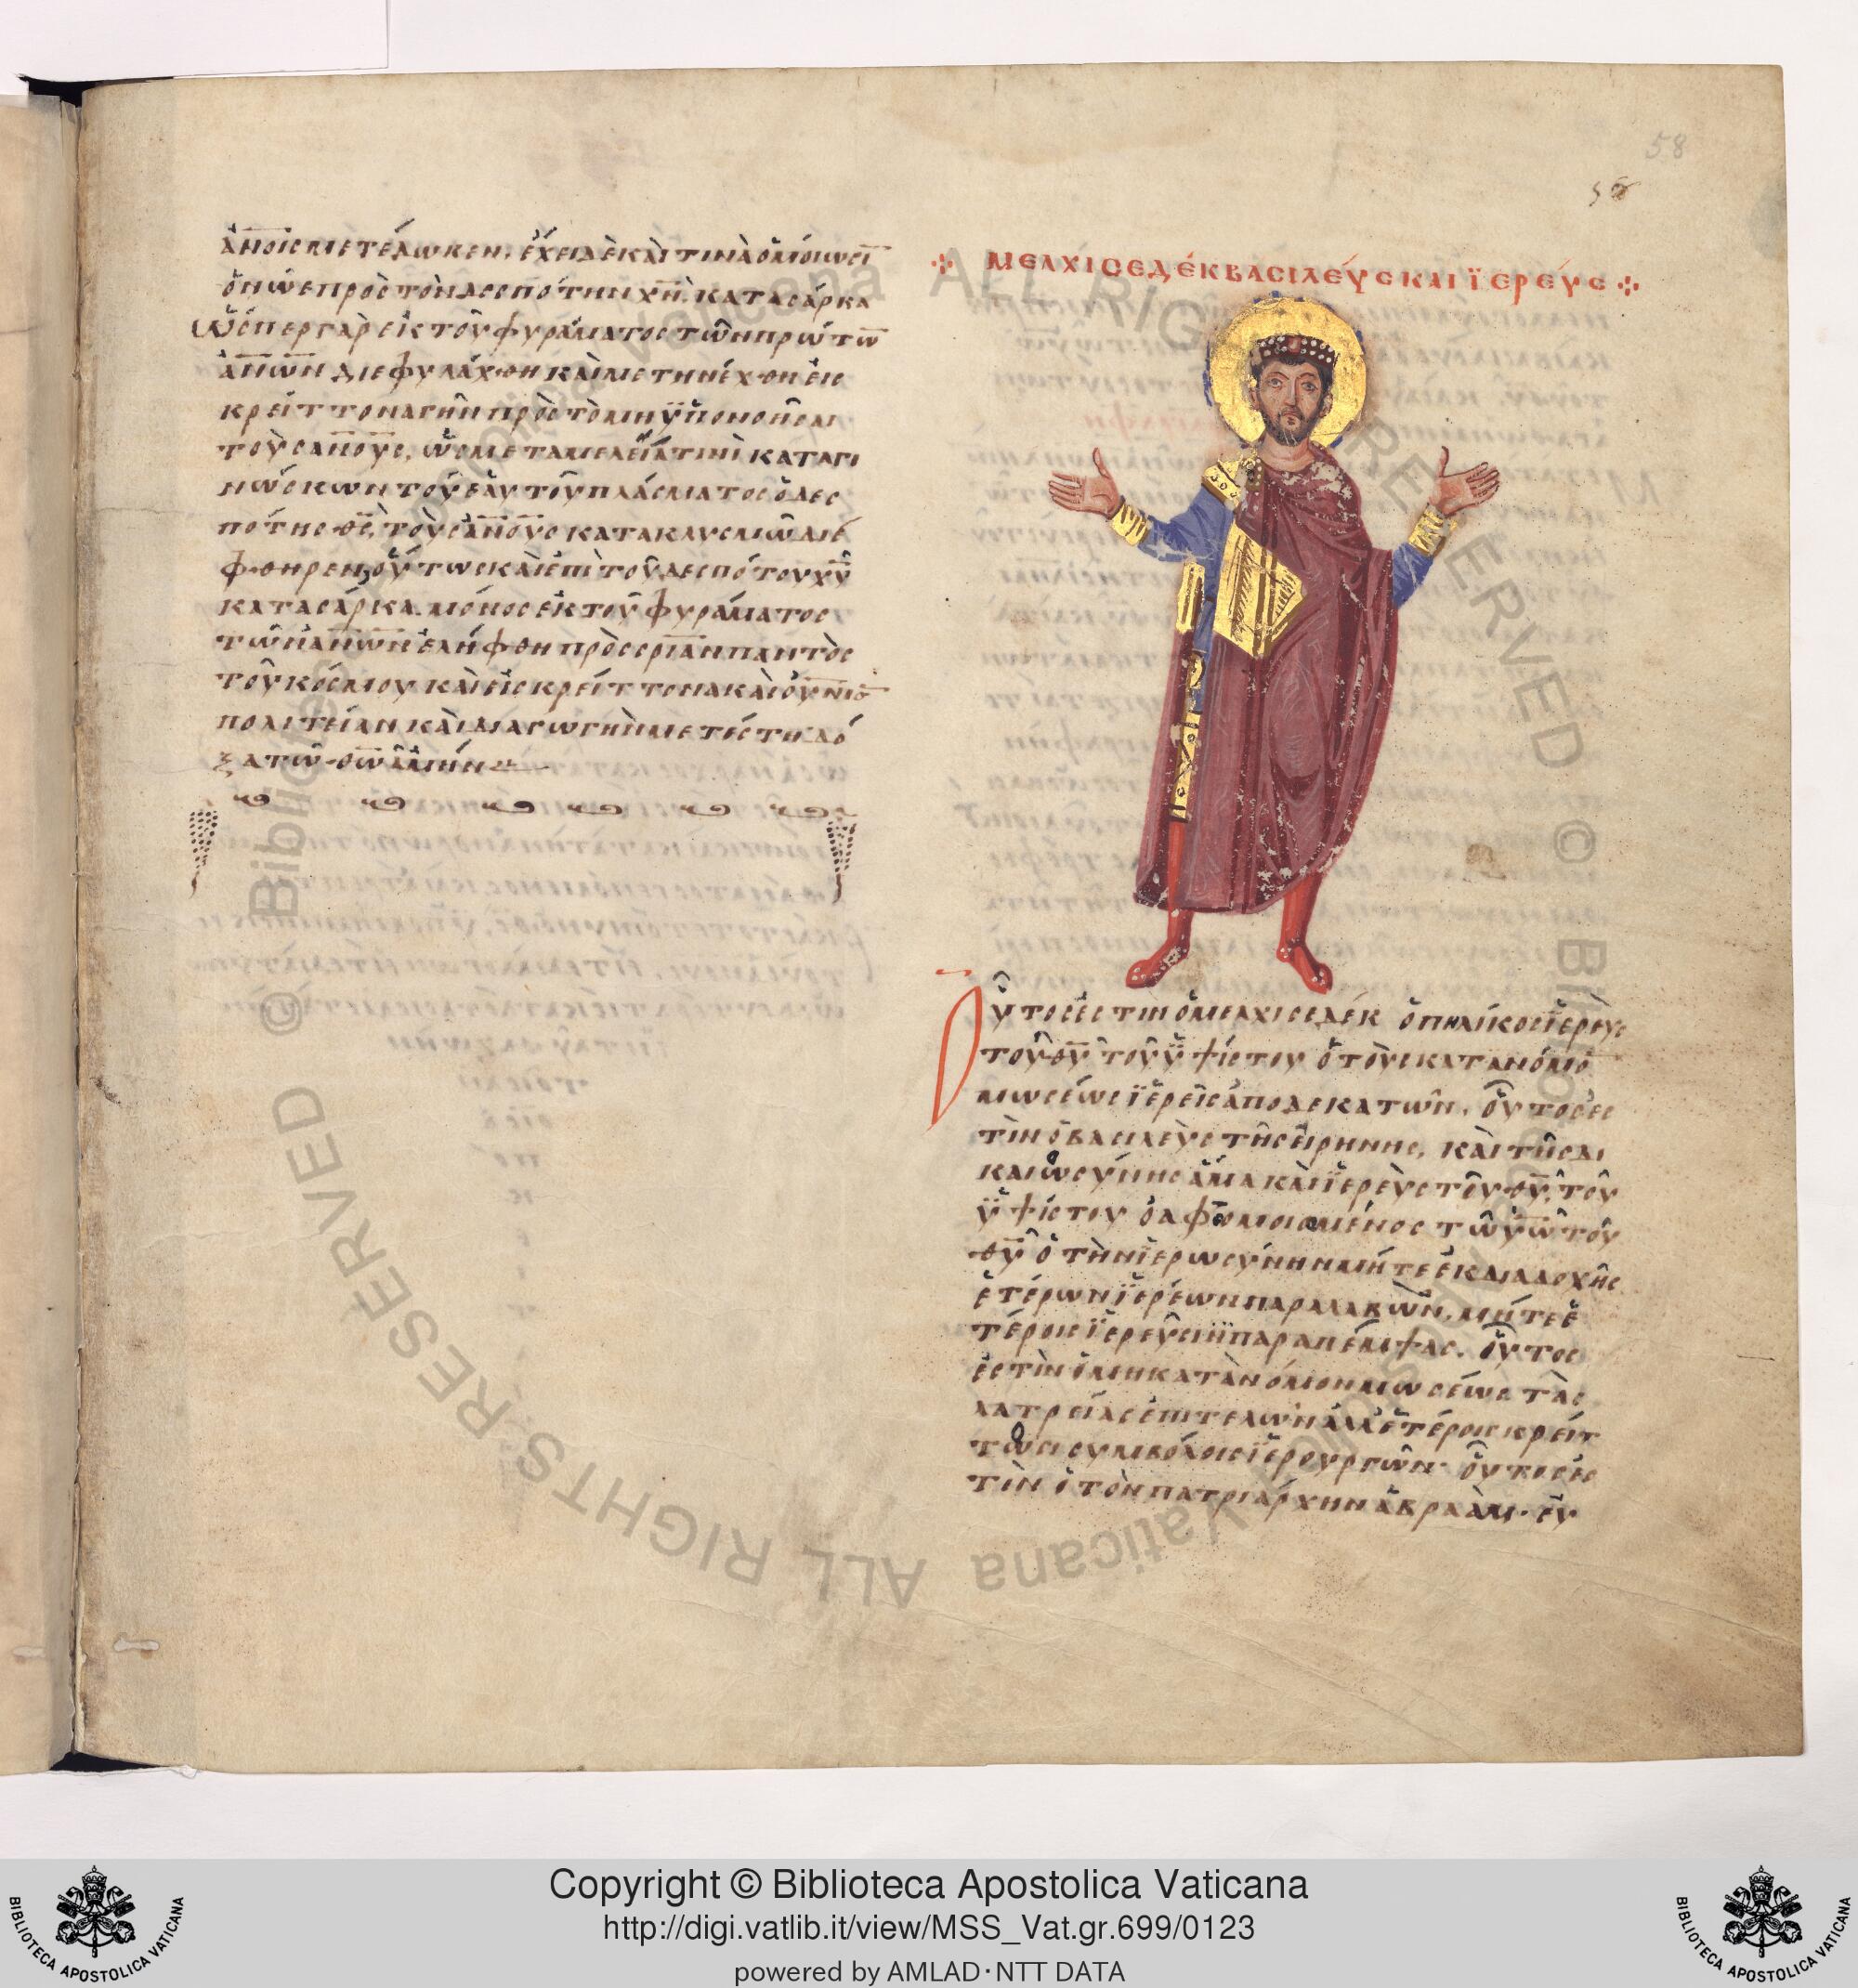 58
ἀ̅ν̅ο̅ις μετέδωκεν, ἔχει δὲ καὶ τινὰ ὁμοίωσι̅
ὁ νῶε πρὸς τὸν δεσπότην χ̅ν̅, κατα σάρκα
ὥσπερ γὰρ ἐκ τοῦ φυράματος τῶν πρώτω̅
ἀ̅ν̅ω̅ν διεφυλάχθη καὶ μετηνέχθη εἰς
κρείττονα γῆν πρὸς τὸ μὴ ὑπονοῆσαι
τοὺς α̅ν̅ο̅υ̅ς, ὡς μεταμελείᾳ τινὶ καταγι
νώσκων τοῦ ἑαυτοῦ πλάσματος ὁ δες
πότης θ̅ς̅, τοὺς α̅ν̅ο̅υ̅ς κατακλυσμῶ διέ
φθηρεν, οὕτως καὶ ἐπὶ τοῦ δεσπότου χ̅υ̅
κατα σάρκα μόνος ἐκ τοῦ φυράματος
τῶν α̅ν̅ω̅ν ἐλήφθη πρὸς σ̅ρ̅ι̅α̅ν παντὸς
τοῦ κόσμου καὶ εἰς κρείττονα καὶ ο̅υ̅ν̅ιο̅
πολιτείαν καὶ διαγωγὴν μετέστη δό
ξα τῶ θ̅ω̅ ἀμήν
ΜΕΛΧΙΣΕΔΈΚ ΒΑΣΙΛΕΎΣ ΚΑΙ ΪΕΡΕΎΣ
Οὗτος ἐστὶν ὁ μελχισεδέκ ὁ πηλίκος ἱερεὺς
τοῦ θ̅υ̅ τοῦ ὑψίστου ὁ τοὺς κατα νόμο̅
μωσέως ἱερεῖς ἀποδεκατῶν, οὗτος ἐς
τὶν ὁ βασιλεὺς τῆς εἰρήνης, καὶ τῆς δι
καιωσύνης ἅμα καὶ ἱερεὺς τοῦ θ̅υ̅ τοῦ
ὑψίστου ὁ αφομοιομένος τῶ υ̅ω̅ τοῦ
θ̅υ̅ ὁ τὴν ἱερωσύνην μήτε ἐκ διαδοχῆς
ἑτέρων ἱερέων παραλαβὼν, μήτε ἑ
τέροις ἱερεῦσιν παραπέμψας. οὗτος
ἐστὶν ὁ μη κατὰ νόμον μωσέως τὰς
λατρείας ἐπιτελῶν ἀλλ' ἑτέροις κρείτ
τωσι συμβόλοις ἱερουργῶν· οὗτος ἐς
τὶν ὁ τὸν πατριάρχην ἀβραὰμ· εὐ
Copyright © Biblioteca Apostolica Vaticana
http://digi.vatlib.it/view/MSS_Vat.gr.699/0123
powered by AMLAD·NTT DATA
BIBLIOTECA APOSTOLICA VATICANA
BIBLIOTECA APOSTOLICA VATICANA
© Biblioteca Apostolica Vaticana ALL RIGHTS RESERVED © Biblioteca Apostolica Vaticana ALL RIGHTS RESERVED